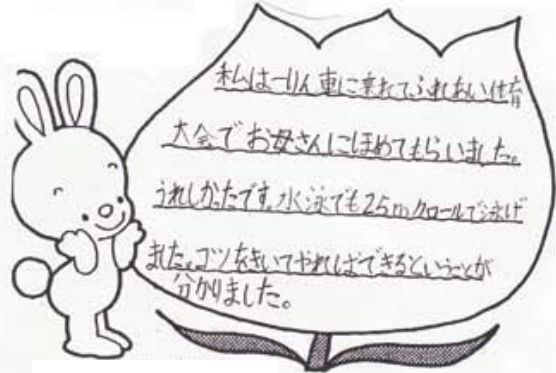 私は一りん車に乗れてふれあい体育
大会でお母さんにほめてもらいました。
うれしかったです。水泳でも25mクロールで泳げ
ました。コツをきいてやればできるということが
分かりました。